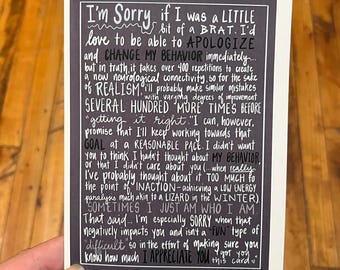 I'm Sorry, if I was a LITTLE
bit of a BRAT. I'd
love to be able to APOLOGIZE
and CHANGE MY BEHAVIOR immediately...
but in truth it takes over 400 repetitions to create
a new neurological connectivity, so for the sake
of REALISM, I'll probably make similar mistakes
with varying degrees of improvement
SEVERAL HUNDRED MORE TIMES BEFORE
"getting it right". I can, however,
promise that I'll keep working towards that
GOAL at a REASONABLE PACE. I didn't want
you to think I hadn't thought about MY BEHAVIOR
or that I didn't care about you (...when really
I've probably thought about it TOO MUCH to
the point of INACTION - achieving a LOW ENERGY
paralysis much akin to a LIZARD in the WINTER)
SOMETIMES I JUST AM WHO I AM
That said... I'm especially SORRY when that
negatively impacts you and isn't a "FUN" type of
"difficult" so in the effort of making sure you
know how much I APPRECIATE YOU "I got you this card"